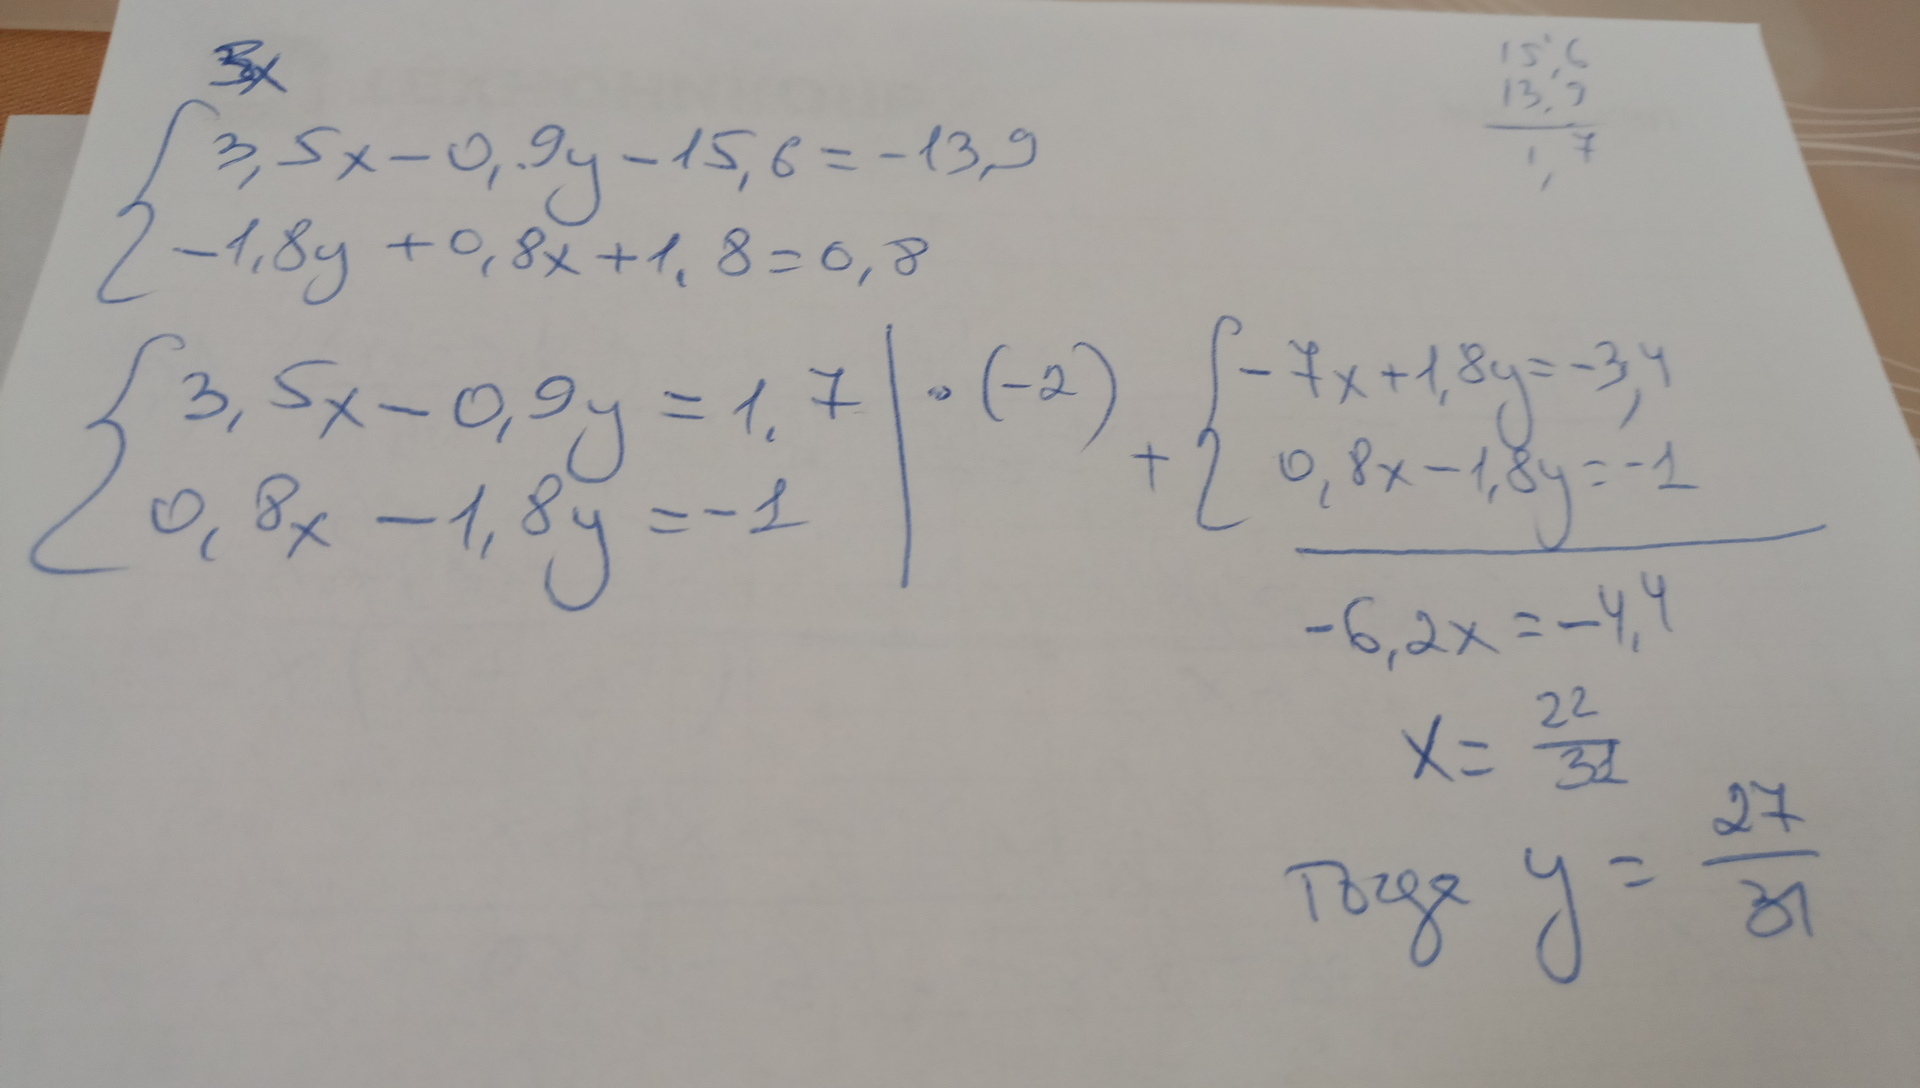 3x
3,5x-0,9y-15,6=-13,9
-1,8y+0,8x+1,8=0,8
15,6
13,9
1,7
3,5x-0,9y=1,7 | · (-2)
0,8x-1,8y=-1
+
-7x+1,8y=-3,4
0,8x-1,8y=-1
-6,2x=-4,4
x=22/31
Тогда y=27/31